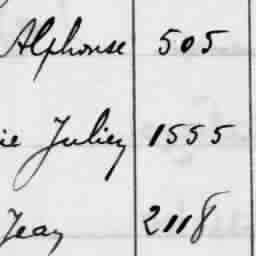 Alphonse 505
ie Julien 1555
Jean 2118